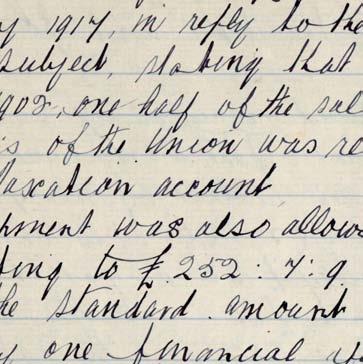 y 1917, in reply to the
subject, stating that
1902, one half of the sal
s of the Union was re
Taxation account
pment was also allow
ting to £252:7:9
he standard amount
y one financial